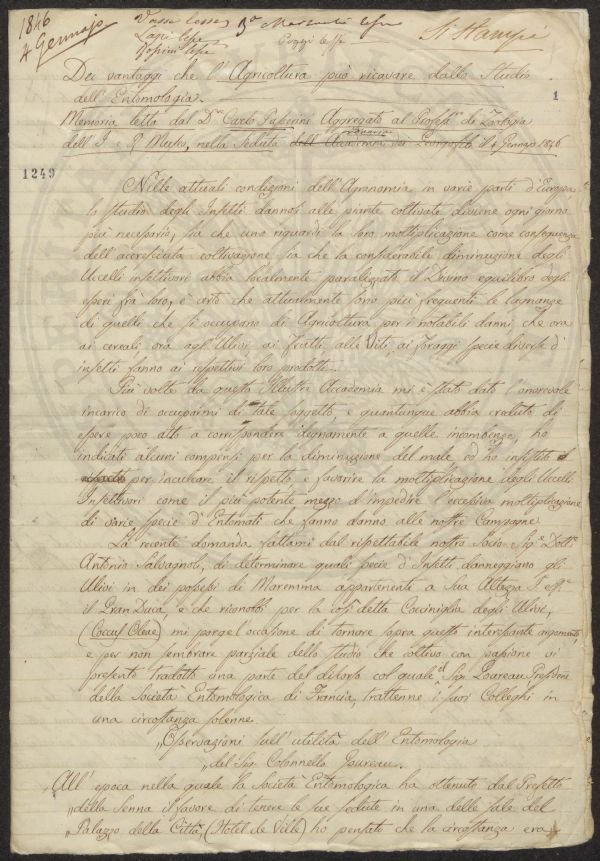 1846
4 Gennajo
Si Stampi
Dei vantaggi che l'Agricoltura può ricavare dallo Studio
dell'Entomologia.
1
Memoria letta dal D.r Carlo Passerini Aggregato al Profess.re di Zoologia
dell'I e R Museo, nella Seduta ordinaria dell'Accademia dei Georgofili il 4 Gennajo 1846
1249
Nelle attuali condizioni dell'Agronomia in varie parti d'Europa
lo studio degli Insetti dannosi alle piante coltivate diviene ogni giorno
più necessario, sia che uno riguardi la loro moltiplicazione come conseguenza
dell'accresciuta coltivazione sia che la considerabile diminuzione degli
Uccelli insettivori abbia localmente paralizzato il Divino equilibro degli
esseri frà loro, è certo che attualmente sono più frequenti le lagnanze
di quelli che si occupano di Agricoltura per i notabili danni, che ora
ai cereali ora agl'Ulivi ai frutti alle Viti, ai foraggi specie diverse d'
insetti fanno ai respettivi loro prodotti.
Più volte da questa Illustre Accademia mi è stato dato l'onorevole
incarico di occuparmi di tale soggetto e quantunque abbia creduto di
essere poco atto a corrispondere degnamente a quelle incombenze, ho
indicati alcuni compensi per la diminuzione del male ed ho insistito
per inculcare il rispetto, e favorire la moltiplicazione degli Uccelli
Insettivori come il più potente mezzo d'impedire l'eccessiva moltiplicazione
di varie specie d'Entomati che fanno danno alle nostre Campagne.
La recente domanda fattami dal rispettabile nostro Socio Sig.e Dott.e
Antonio Salvagnoli, di determinare quali specie d'Insetti danneggiano gli
Ulivi in dei possessi di Maremma appartenente a Sua Altezza
il Gran Duca e che riconobbi per la così detta Cocciniglia degli Ulivi,
(Coccus Oleae) mi porge l'occasione di tornare sopra questo interessante argomento,
e per non sembrare parziale dello studio che coltivo con passione vi
presento tradotto una parte del discorso col quale il Sig. Goureau Presidente
della Società Entomologica di Francia, trattenne i suoi Colleghi in
una circostanza solenne.
„Osservazioni sull'utilità dell'Entomologia
„del Sig. Colonnello Goureau.
„All'epoca nella quale la Società Entomologica ha ottenuto dal Prefetto
„della Senna il favore di tenere le sue sedute in una delle sale del
„Palazzo della Città, (Hotel de Ville) ho pensato che la circostanza era